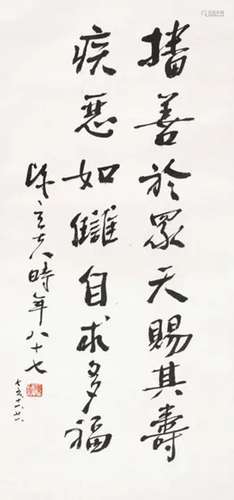 播善於眾天賜其壽
疾惡如讎自求多福
陳立夫時年八十七